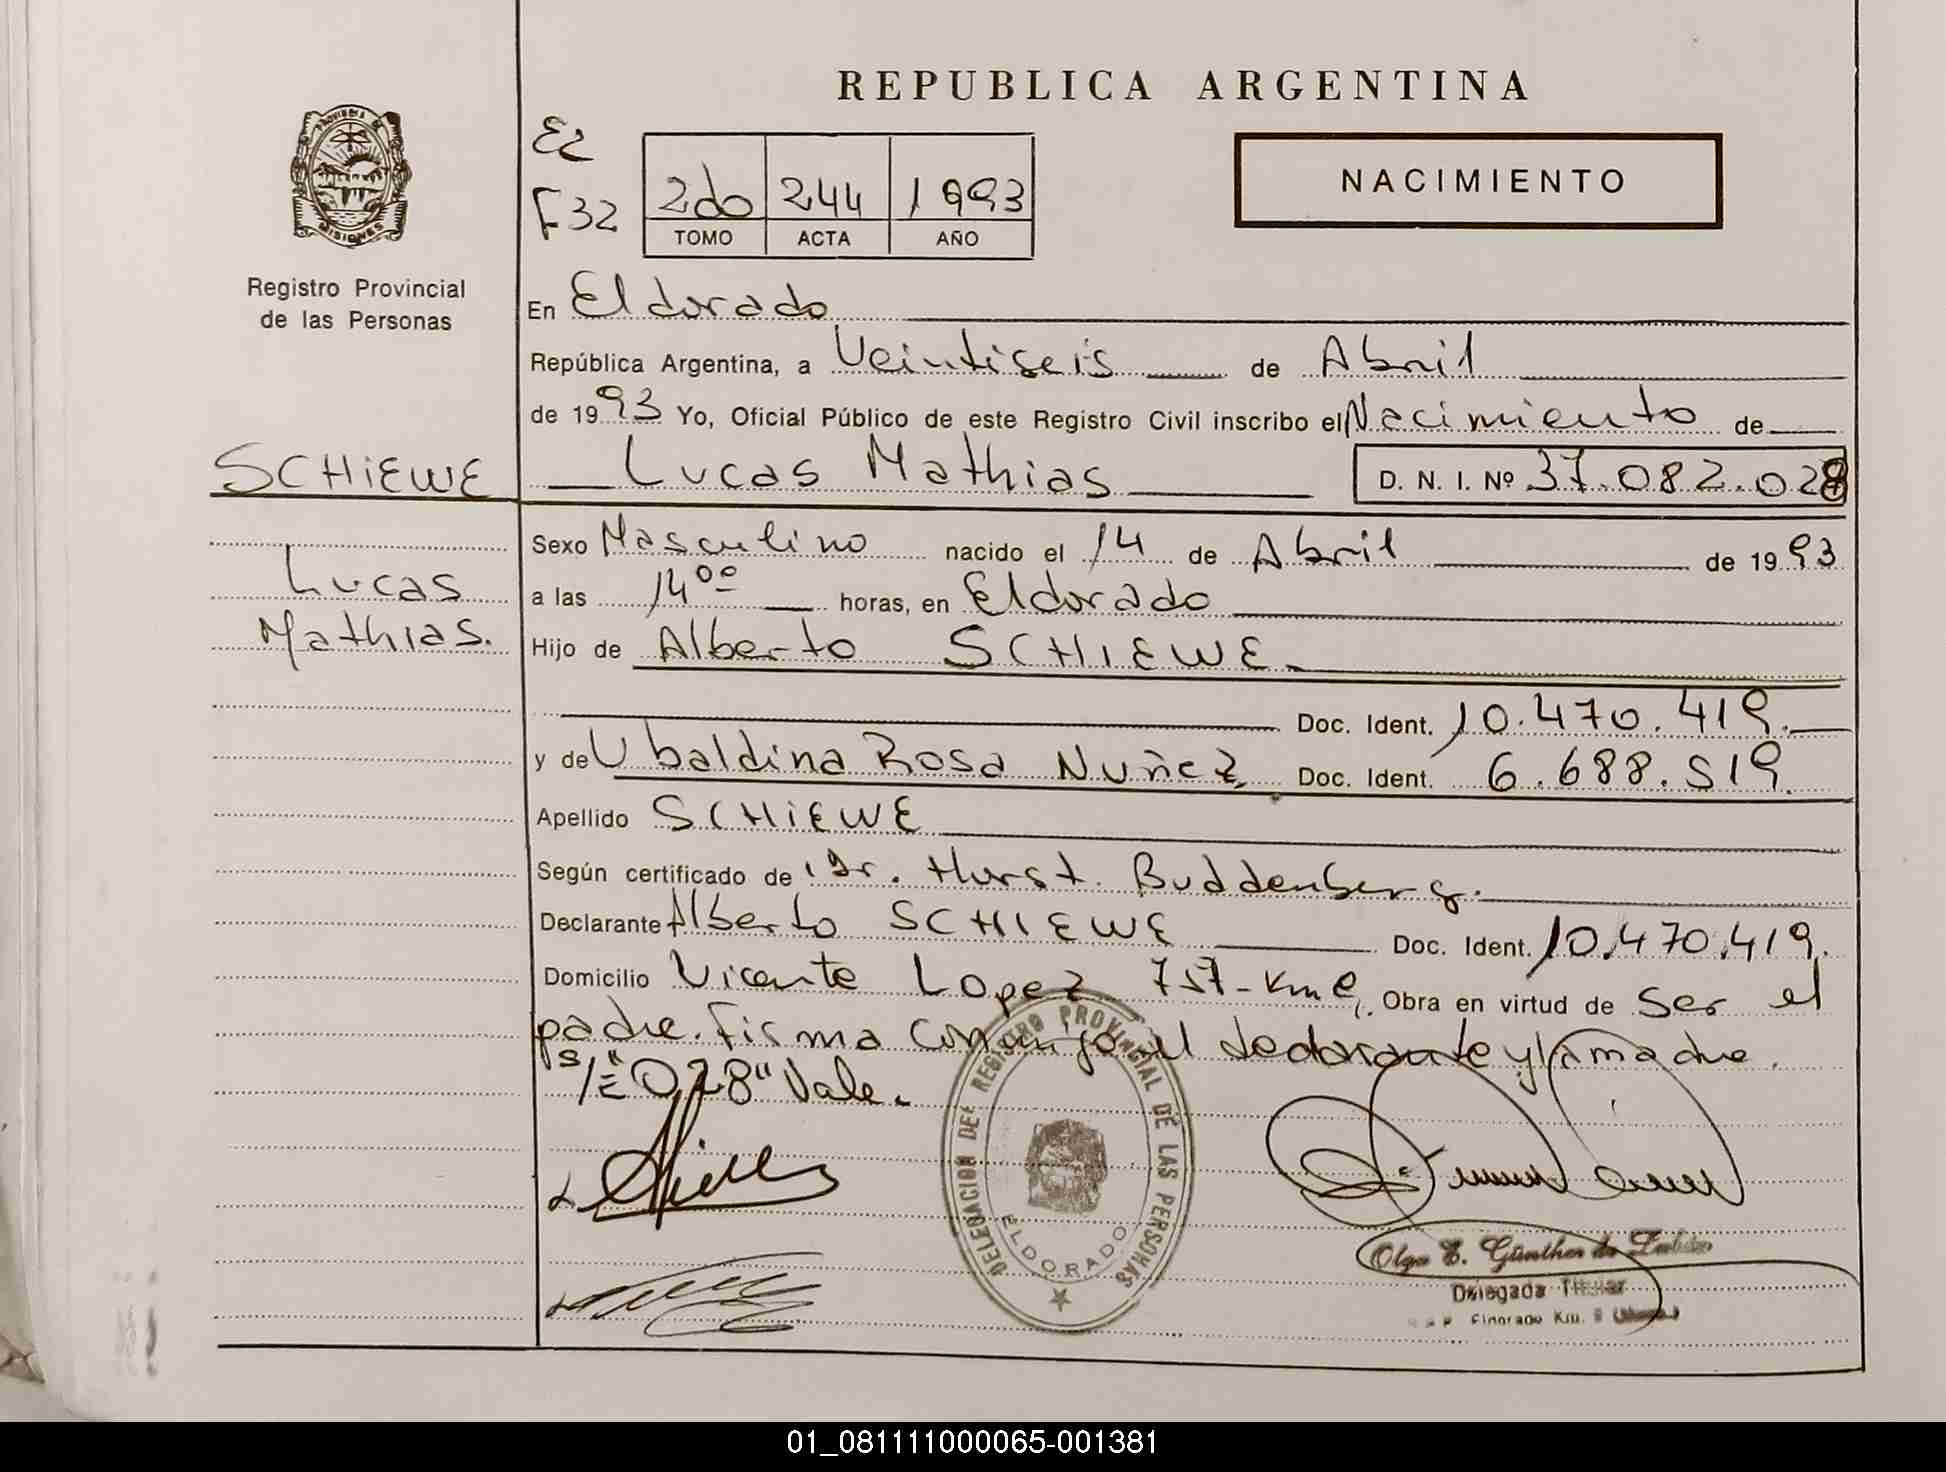 REPUBLICA ARGENTINA
PROVINCIA DE
MISIONES
Registro Provincial
de las Personas
F32
2do 244 1993
TOMO ACTA AÑO
NACIMIENTO
En Eldorado
República Argentina, a Veintiseis de Abril
de 1993 Yo, Oficial Público de este Registro Civil inscribo el Nacimiento de
SCHIEWE
Lucas Mathias D. N. I. Nº 37.082.028
Lucas
Mathias.
Sexo Masculino nacido el 14 de Abril de 1993
a las 14ºº horas, en Eldorado
Hijo de Alberto SCHIEWE.
Doc. Ident. 10.470.419.
y de Ubaldina Rosa Nuñez, Doc. Ident. 6.688.519.
Apellido SCHIEWE
Según certificado de Dr. Horst. Buddenberg.
Declarante Alberto SCHIEWE Doc. Ident. 10.470.419.
Domicilio Vicente Lopez 757 - Km Obra en virtud de Ser el
padre. Firma conmigo el declarante y la madre.
S/E "028" Vale.
DELEGACION DEL REGISTRO PROVINCIAL DE LAS PERSONAS
ELDORADO
Olga E. Günther de
Delegada Titular
Eldorado Km.
01_081111000065-001381